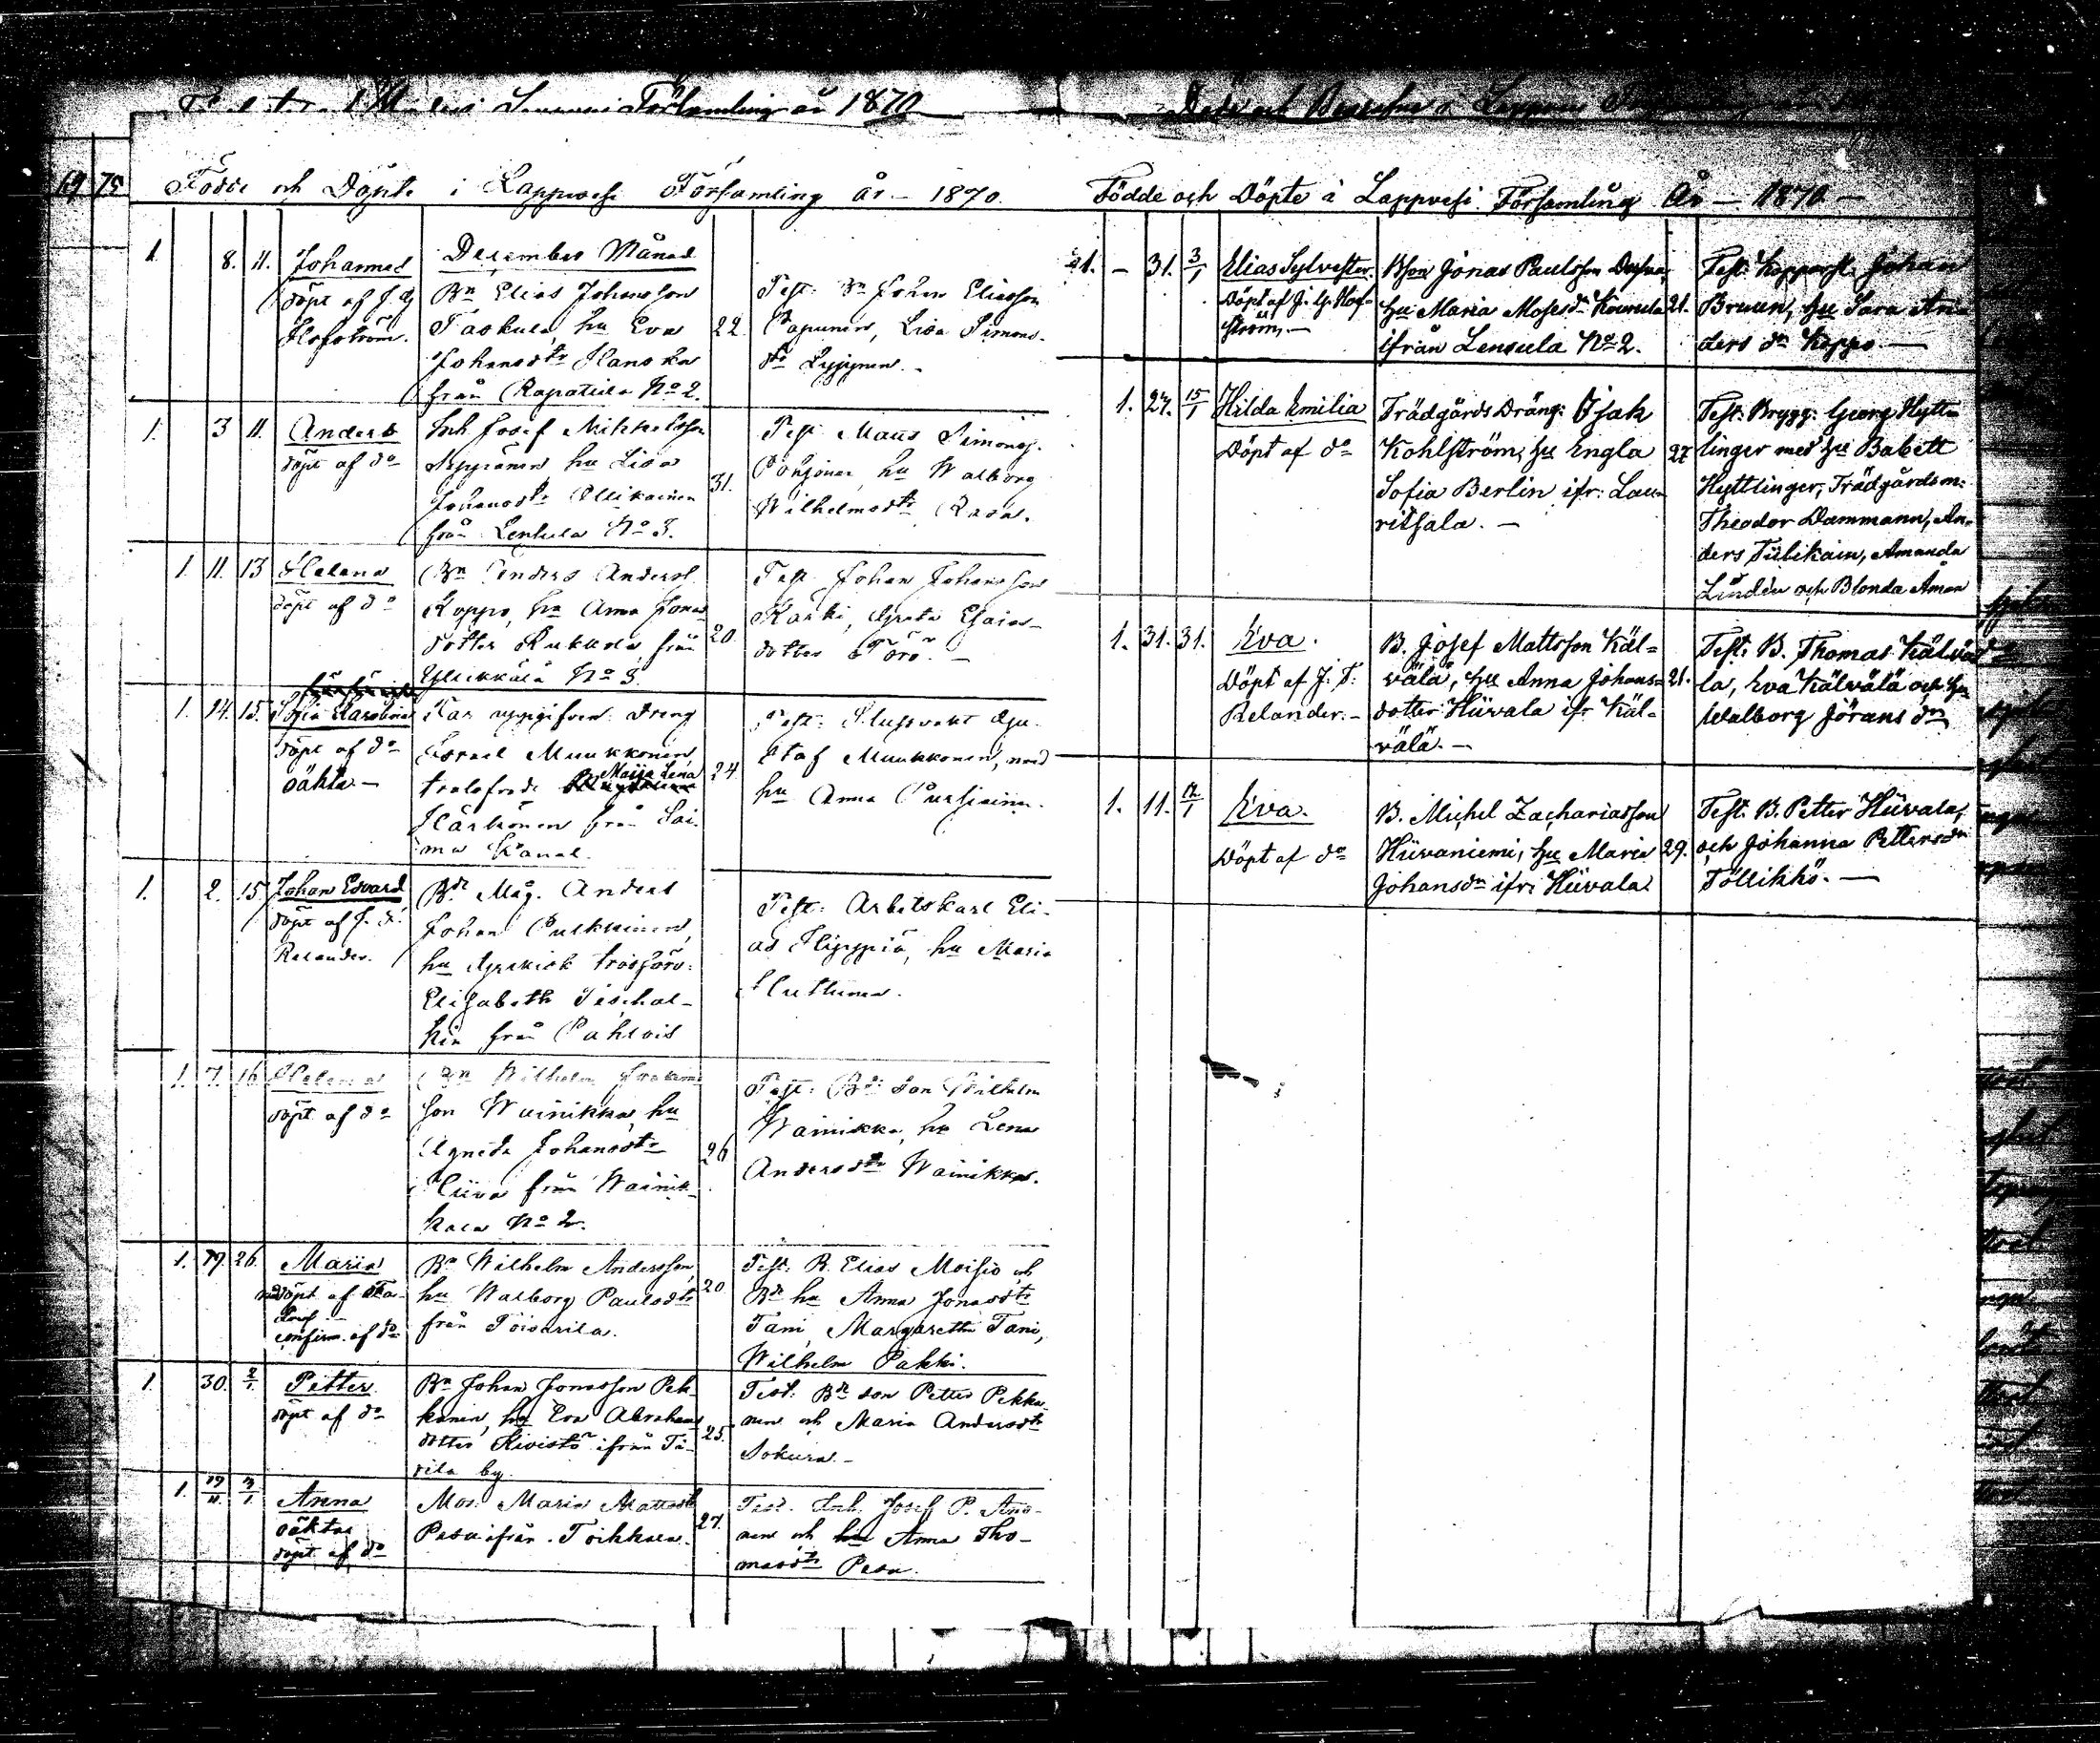 Församling år 1870
Döde och Begrafne i Lappvesi
19 75 Födde och Döpte i Lappvesi Församling år - 1870.
December Månad
1. 8. 11. Johannes
döpt af J. G.
Hofström.
Bn Elias Johansson
Taskula, hu Eva
Johansdtr Hanska
från Rapattila No 2.
22.
Test: Bn Johan Eliasson
Papunen, Lisa Simons-
dtr Lyijynen.
1. 3 11. Anders
döpt af do
Inh Josef Mikkelsson
hu Lisa
Johansdtr Ollikainen
från Lenkula No 3.
31.
Test Matts Simonss.
Pohjonen, hu Walborg
Wilhelmsdtr Rasa.
1. 11. 13 Helena
döpt af do
Bn Anders Anderss.
Koppo, hu Anna Jonas
dotter Kukura, från
Yllikkälä No 3.
20.
Test. Johan Johansson
Karhi, Greta Esaias-
dotter Törö. -
1. 14. 15. Sofia Karolina
döpt af do
oäkta -
Far uppgifven Dreng
Israel Muukkonen,
trolofvade Maija Lena
Härkönen från Sai-
ma Kanal.
24
Test: Slussvakt Gu-
staf Muukkonen, med
hu Anna Pursiainen.
1. 2. 15. Johan Edvard
döpt af J. F.
Relander.
Bde Måg. Anders
Johan Pulkkinen,
hu Grekisk trosförv:
Elisabeth
kin från Pahlois
Test: Arbetskarl Eli-
as Hyyppiä, hu Maria
Huttunen.
1. 7. 16 Helena
döpt af do
Bn Wilhelm Joakims
son Wainikka, hu
Agneta Johansdtr
Hiiva från Wainik-
kala No 2.
26
Test: Bde son Wilhelm
Wainikka, hu Lena
Andersdtr Wainikka.
1. 19. 26. Maria
döpt af
confirm. af do
Bn Wilhelm Andersson,
hu Walborg Paulsdtr
från Toisarila.
20
Test: B. Elias Moisio och
Bde hu Anna Jonasdtr
Tani, Margaretha Tani,
Wilhelm Pakki.
1 30. 2/1. Petter
döpt af do
Bn Johan Jonasson Pek-
kanen, hu Eva Abrahams
dotter Kivistö ifrån Tu-
rila by.
25.
Test: Bde son Petter Pekka-
nen och Maria Andersdtr
Sokura. -
1. 19/11. 3/1. Anna
oäkta
döpt af do
Mor. Maria Mattsdtr
Pasa ifrån Toikkala.
27.
Test. Inh. Josef P. Ano-
nen och hu Anna Tho-
masdtr Pasa.
Födde och Döpte i Lappvesi Församling År - 1870 -
1. - 31. 3/1 Elias Sylvester.
Döpt af J. G. Hof-
ström. -
Bson Jonas Paulsson
hu Maria Mosesdr
ifrån Lensula No 2.
21.
Test: Kopparsl. Johan
Bruun, hu Sara An-
ders dr Koppo. -
1. 27. 15/1 Hilda Emilia
Döpt af do
Trädgårds Dräng: Isak
Kohlström, hu Engla
Sofia Berlin ifr: Lau-
ritsala. -
27
Test: Brygg: Georg Hytt-
linger med hu Babett
Hyttlinger, Trädgårdsm:
Theodor Dammann, An-
ders Tiilikain, Amanda
Lindén och Blonda Åman
1. 31. 31. Eva.
Döpt af J. F:
Relander. -
B. Josef Mattsson Käl-
välä, hu Anna Johans-
dotter Hiivala ifr Käl-
välä. -
21.
Test: B. Thomas Kälvä-
lä, Eva Kälvälä och hu
Walborg Jörans dr
1. 11. 12/1 Eva.
Döpt af do
B. Michel Zachariasson
Hiivaniemi, hu Maria
Johansdr ifr: Hiivala
29.
Test. B. Petter Hiivala,
och Johanna Pettersdr
Töllikkö. -